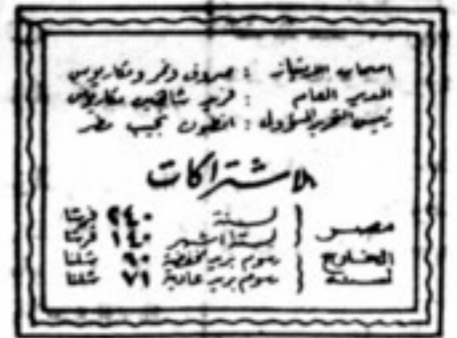 اصحاب الامتياز : صروف ونمر ومكاريوس
المدير العام : فريد شاهين مكاريوس
رئيس التحرير المسؤول : انطون نجيب مطر
الاشتراكات
مصر لسنة ٢٤٠ قرشا
لستة اشهر ١٤٠ قرشا
الخارج رسوم بريد مخفضة ٩٠ شلنا
لسنة رسوم بريد عادية ٧١ شلنا